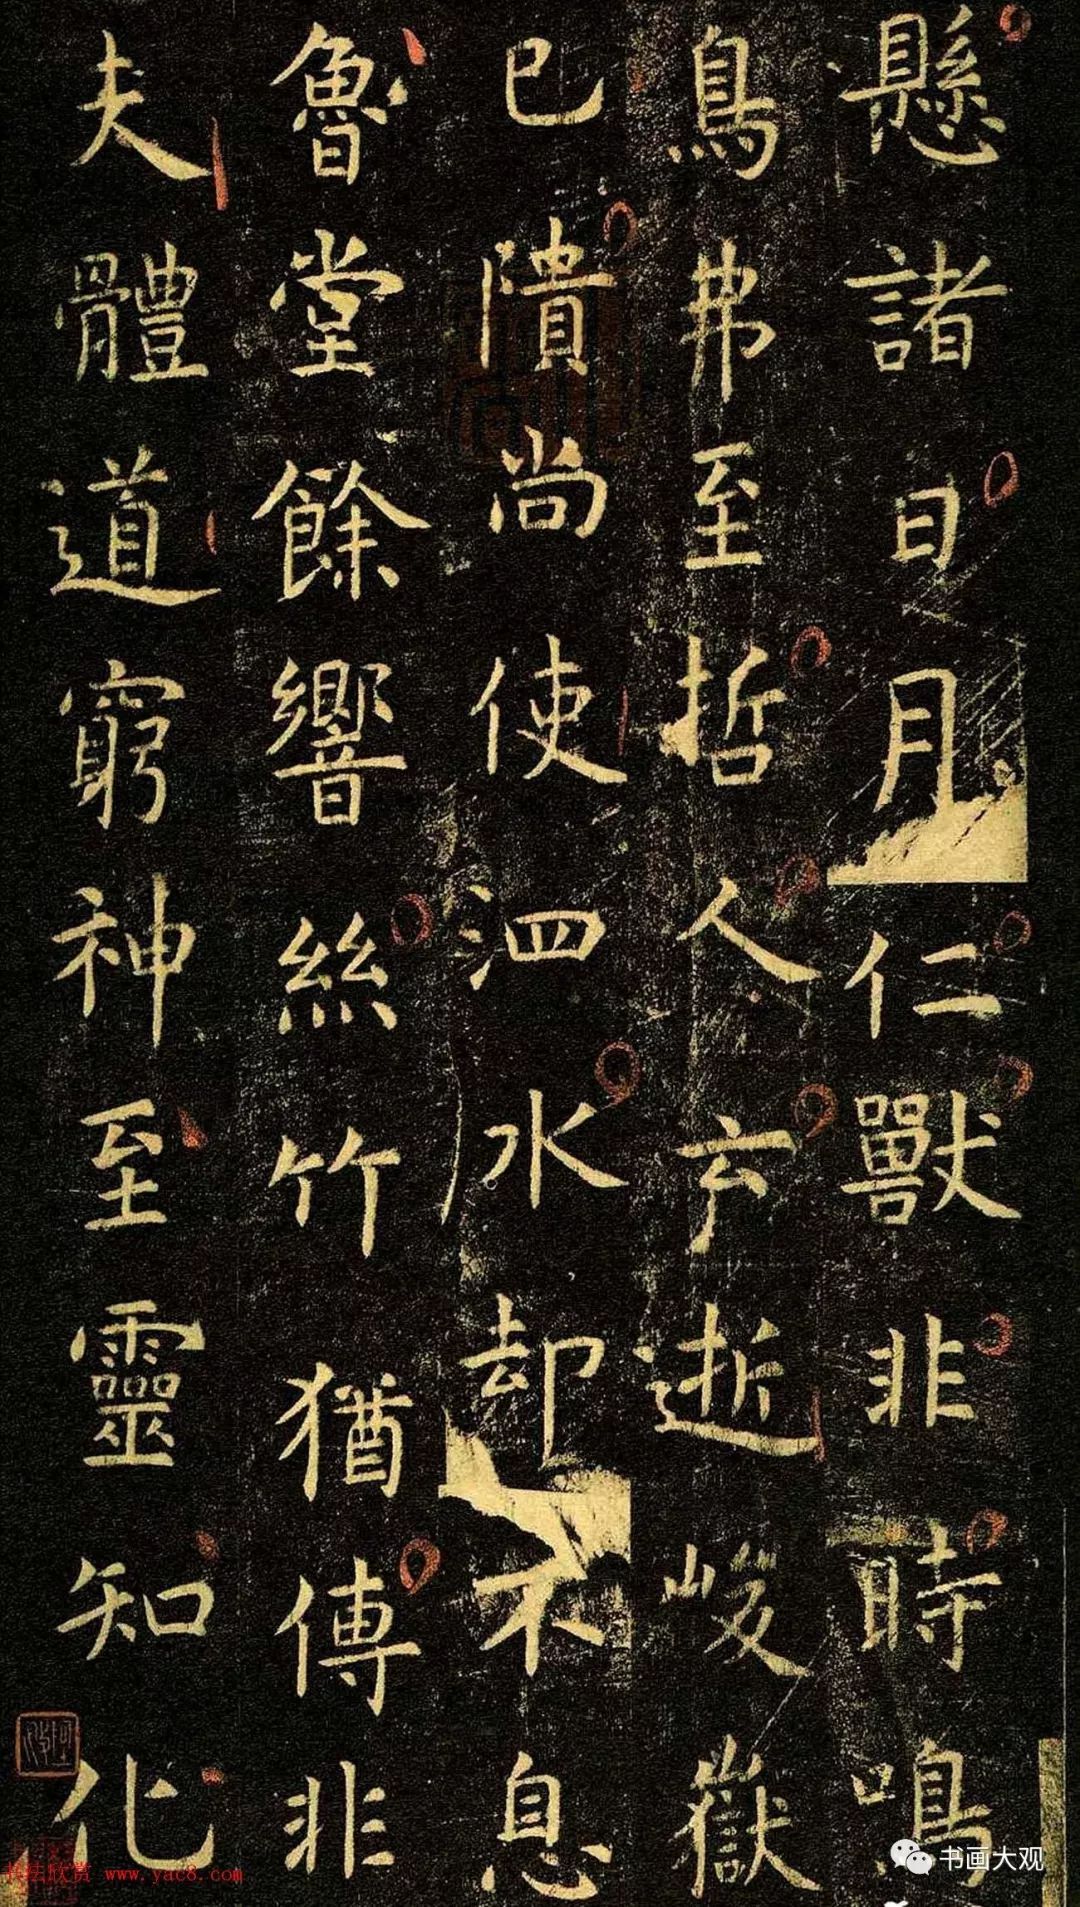 懸諸日月仁獸非時鳴
鳥弗至哲人云逝峻嶽
已隤尚使泗水却不息
魯堂餘響絲竹猶傳非
夫體道窮神至靈知化
书法欣赏 www.yac8.com
书画大观